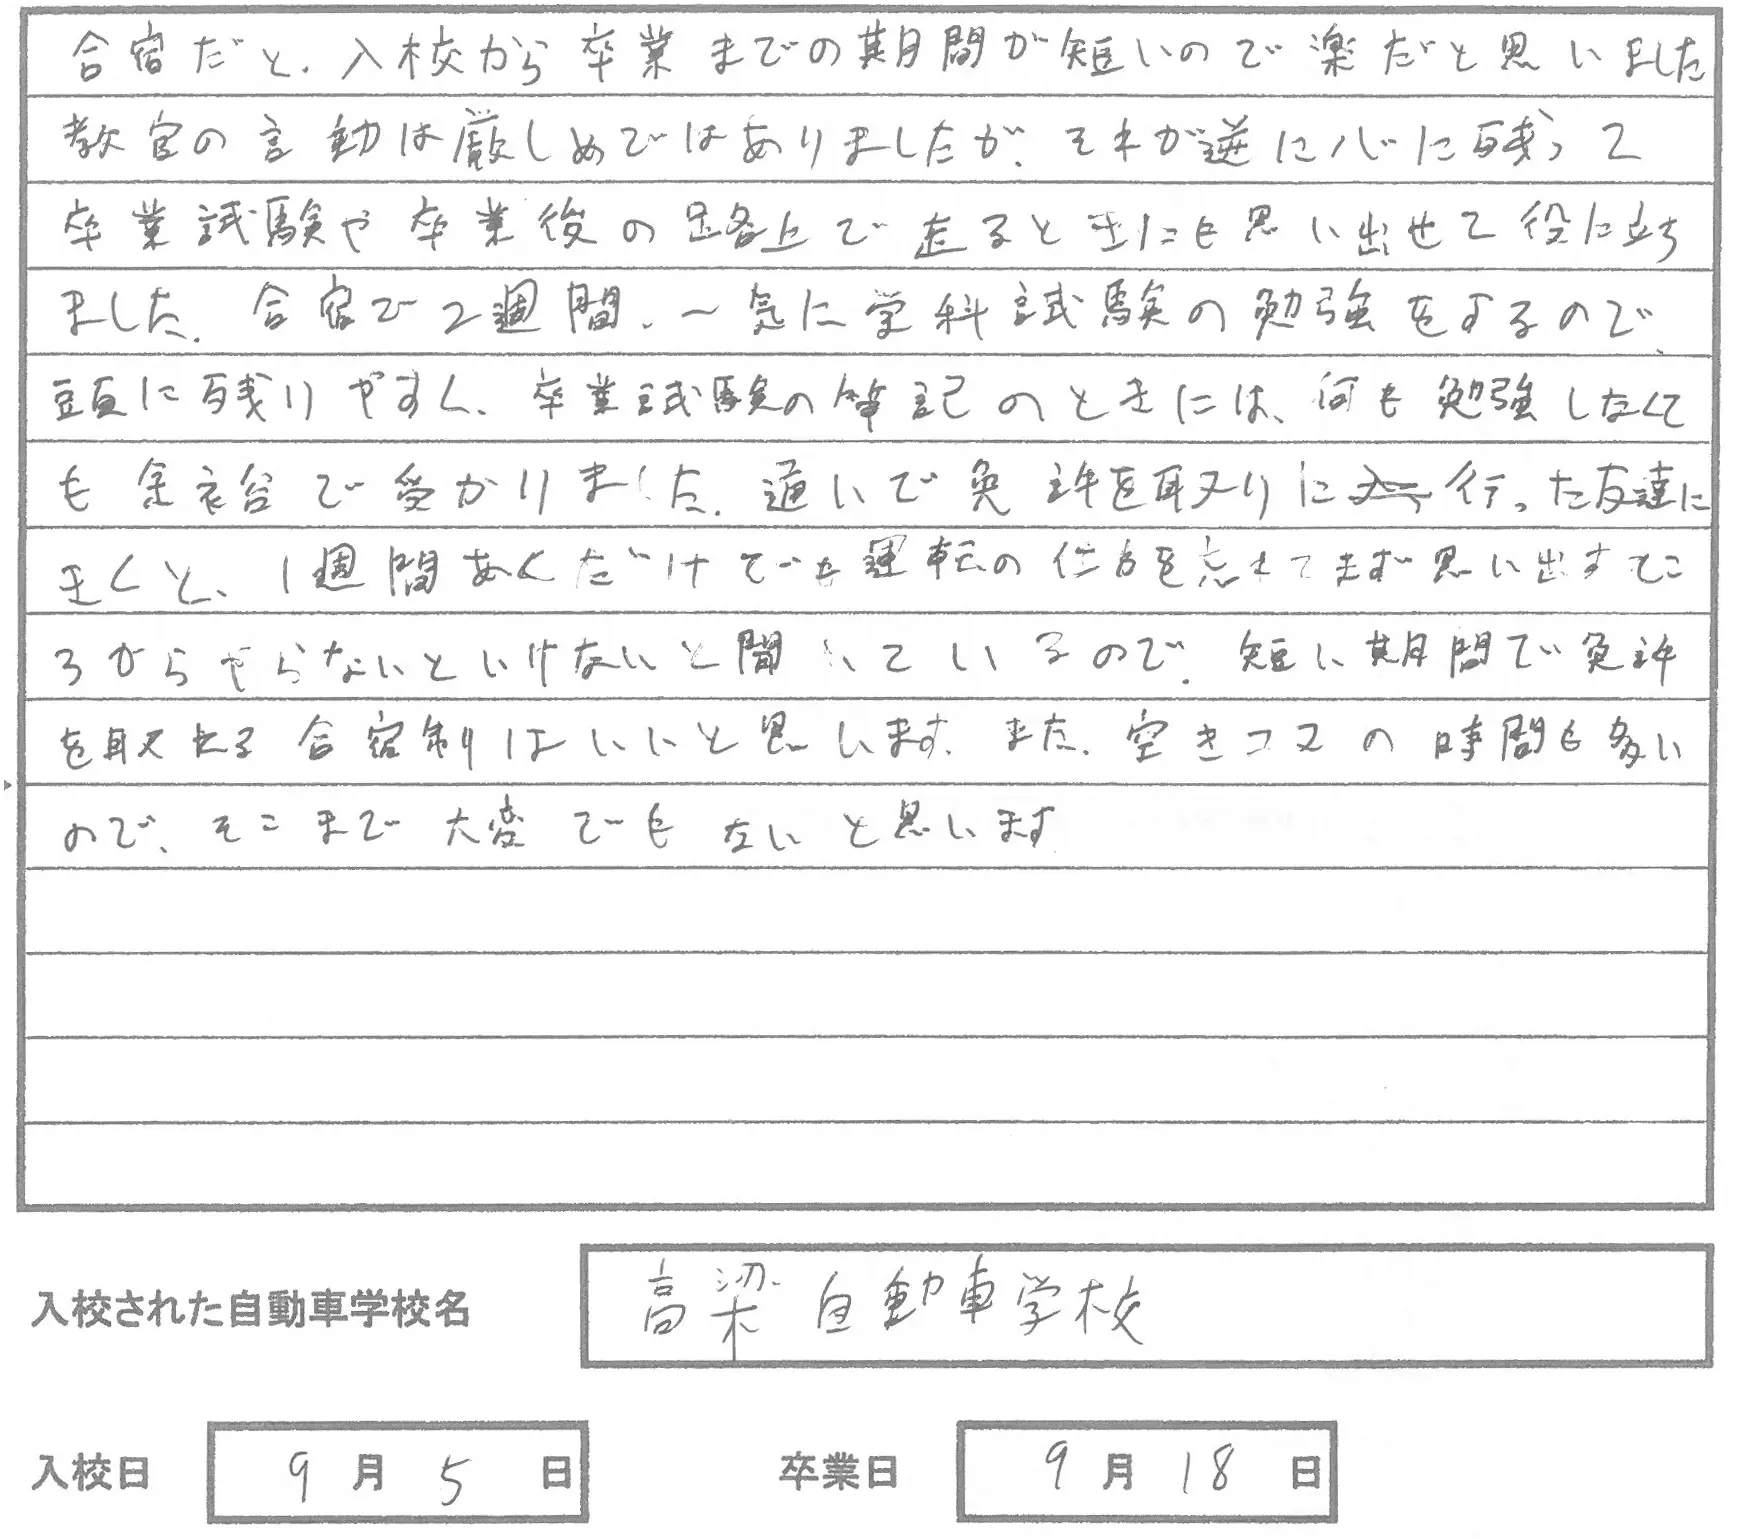 合宿だと、入校から卒業までの期間が短いので楽だと思いました
教官の言動は厳しめではありましたが、それが逆に心に残って
卒業試験や卒業後の路上で走るときにも思い出せて役に立ち
ました。合宿で2週間、一気に学科試験の勉強をするので、
頭に残りやすく、卒業試験の筆記のときには、何も勉強しなくて
も余裕で受かりました。通いで免許を取りに行った友達に
きくと、1週間あくだけでも運転の仕方を忘れてまず思い出すとこ
ろからやらないといけないと聞いているので、短い期間で免許
を取れる合宿制はいいと思います。また、空きコマの時間も多い
ので、そこまで大変でもないと思います
入校された自動車学校名 高梁自動車学校
入校日 9月5日 卒業日 9月18日